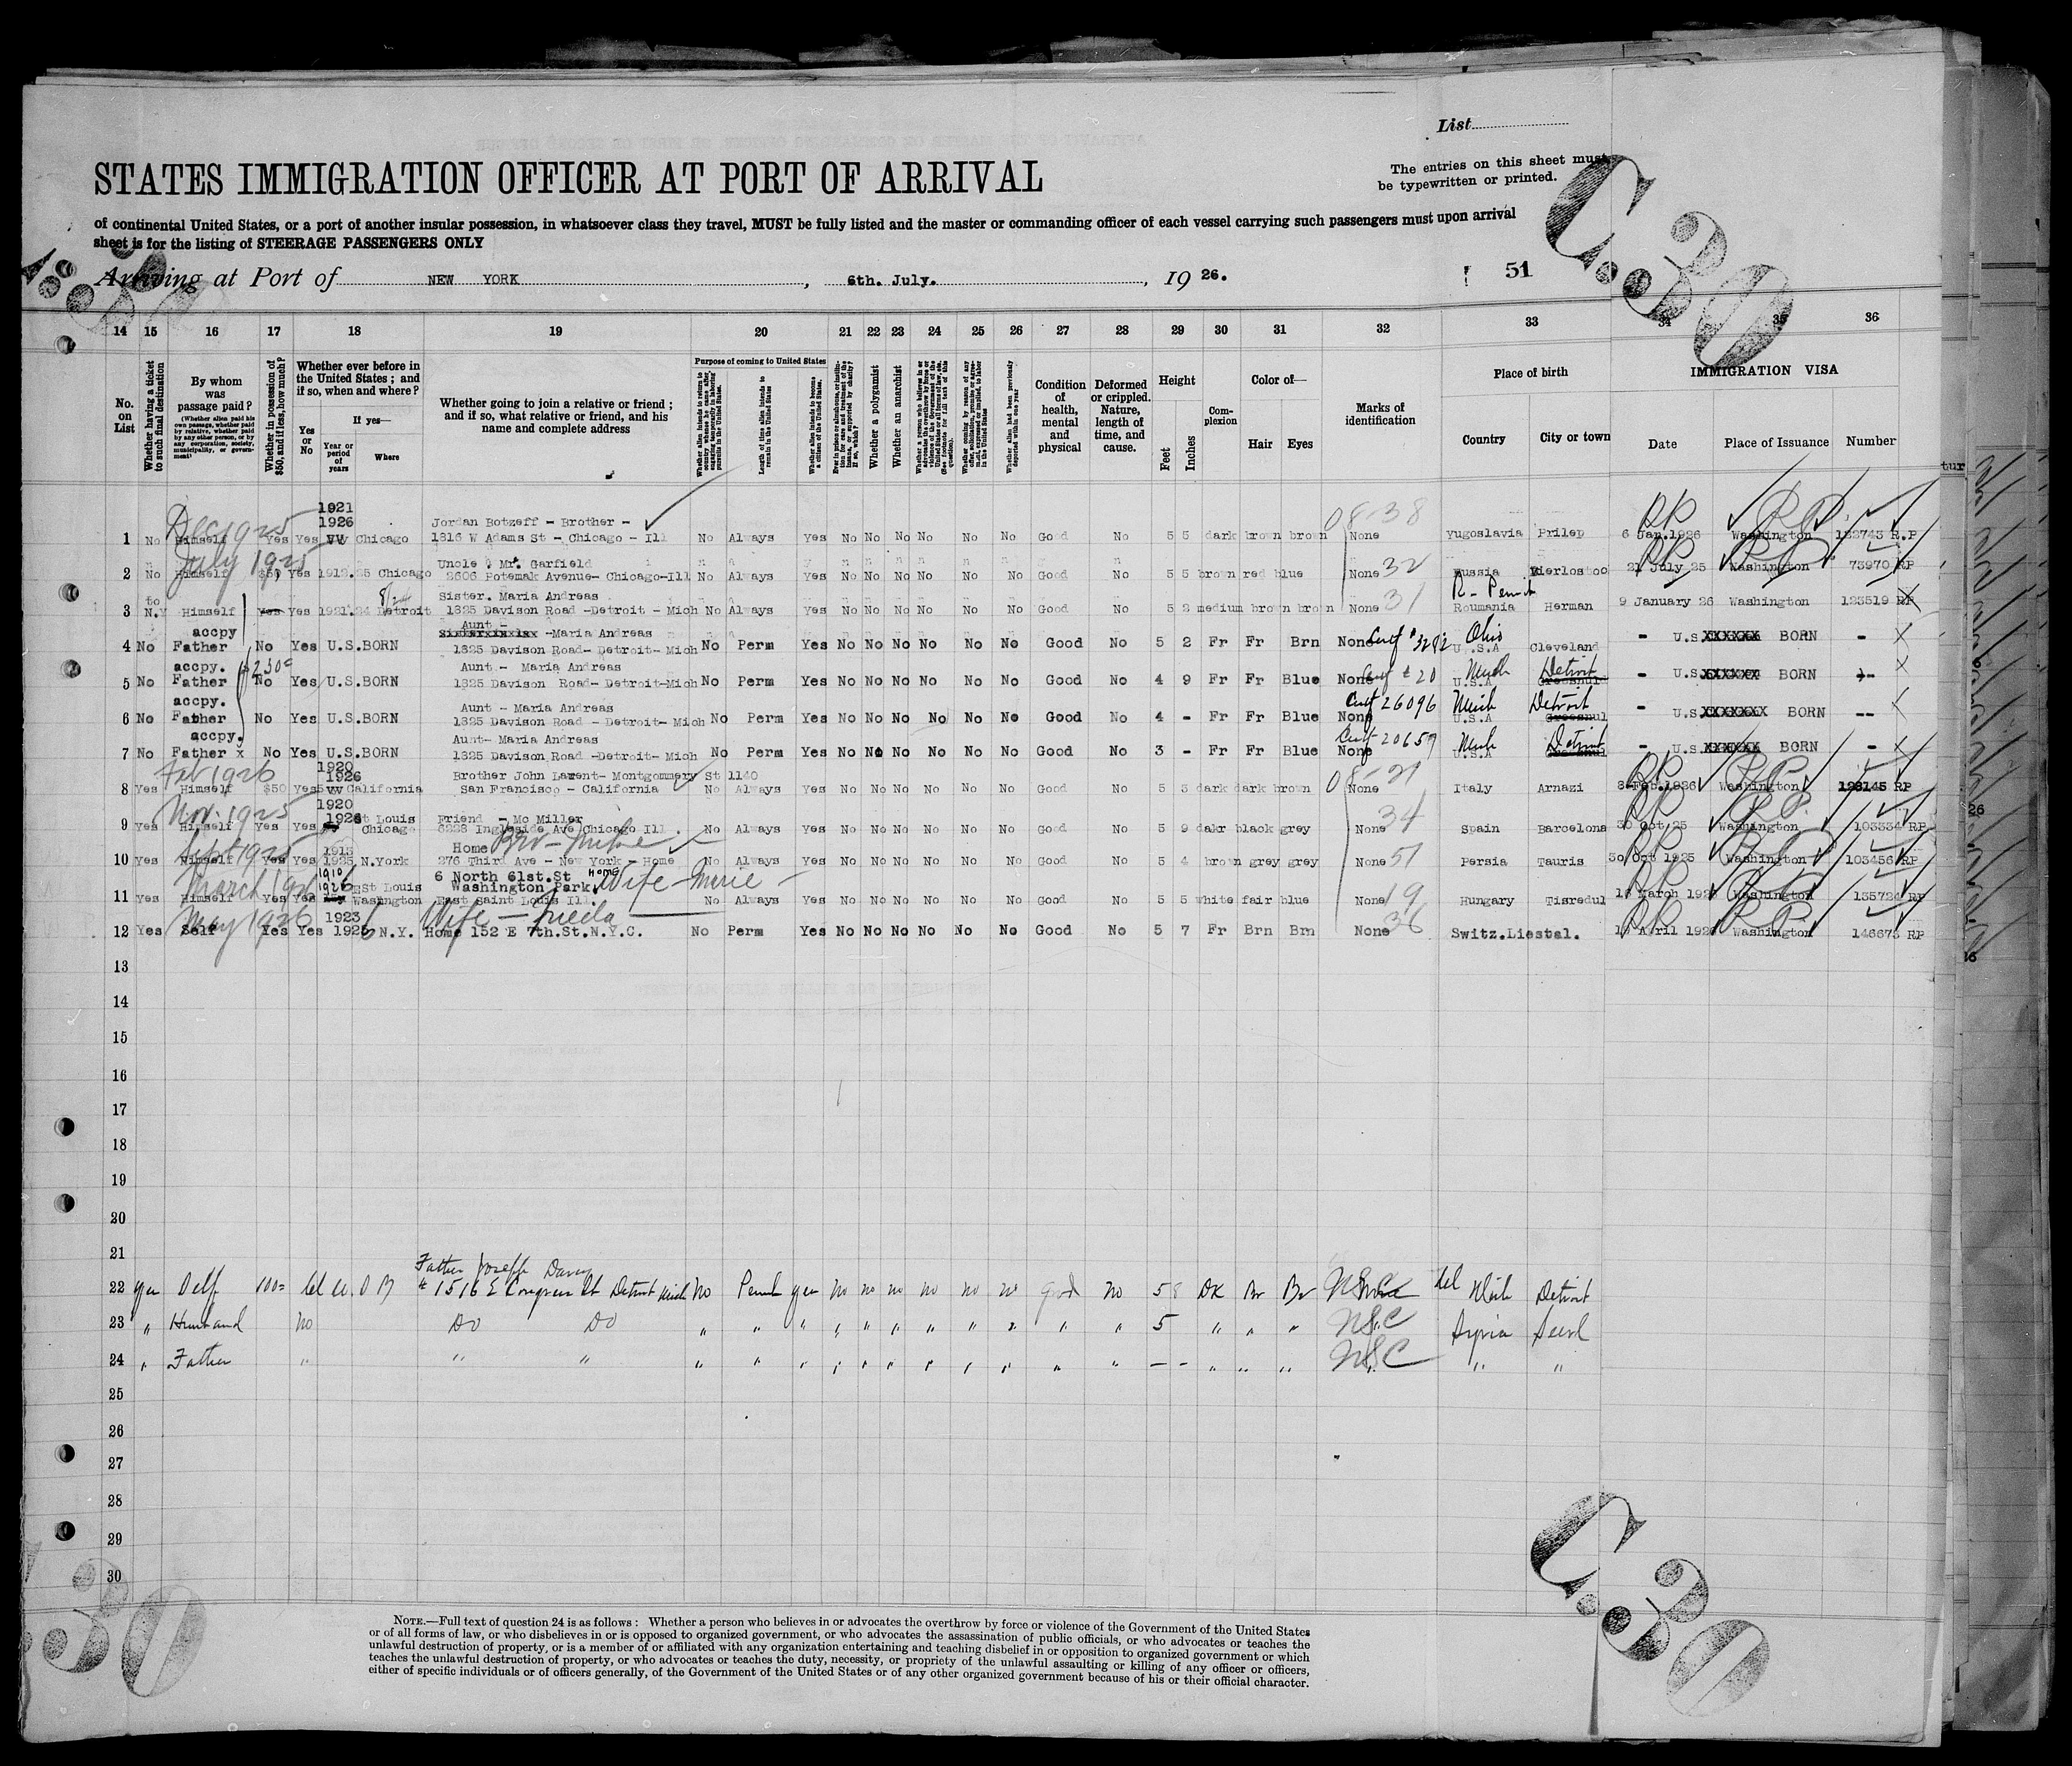 List
The entries on this sheet must
be typewritten or printed.
STATES IMMIGRATION OFFICER AT PORT OF ARRIVAL
of continental United States, or a port of another insular possession, in whatsoever class they travel, MUST be fully listed and the master or commanding officer of each vessel carrying such passengers must upon arrival
sheet is for the listing of STEERAGE PASSENGERS ONLY
Arriving at Port of NEW YORK, 6th. July., 1926.
51
C.30
14 15 16 17 18 19 20 21 22 23 24 25 26 27 28 29 30 31 32 33 34 35 36
No. on List
Whether having a ticket to such final destination
By whom was passage paid?
(Whether alien paid his own passage, whether paid by relative, whether paid by any other person, or by any corporation, society, municipality, or government)
Whether in possession of $50, and if less, how much?
Whether ever before in the United States; and if so, when and where?
Yes or No
If yes—
Year or period of years
Where
Whether going to join a relative or friend; and if so, what relative or friend, and his name and complete address
Purpose of coming to United States
Length of time alien intends to remain in the United States
Whether alien intends to become a citizen of the United States
Whether a polygamist
Whether an anarchist
Condition of health, mental and physical
Deformed or crippled. Nature, length of time, and cause.
Height
Feet
Inches
Complexion
Color of—
Hair
Eyes
Marks of identification
Place of birth
Country
City or town
IMMIGRATION VISA
Date
Place of Issuance
Number
Dec 1925 1921
1926 Jordan Botzeff - Brother - 08-38 RP RP
1 No Himself Yes Yes Chicago 1816 W Adams St - Chicago - Ill No Always Yes No No No No No No Good No 5 5 dark brown brown None Yugoslavia Prilep 6 Jan.1926 Washington 132743 R.P
July 1925 Uncle Mr. Garfield
2 No Himself $50 Yes 1912.25 Chicago 2606 Potemak Avenue- Chicago-Ill No Always Yes No No No No No No Good No 5 5 brown red blue None 32 Russia 21 July 25 Washington 73970 RP
to 8/24 Sister. Maria Andreas 31 R-Permit
3 N.Y Himself Yes Yes 1921.24 Detroit 1325 Davison Road -Detroit - Mich No Always Yes No No No No No No Good No 5 2 medium brown brown None Roumania Herman 9 January 26 Washington 123519 RP
accpy Aunt -
-Maria Andreas Ohio
4 No Father No Yes U.S.BORN 1325 Davison Road- Detroit- Mich No Perm Yes No No No No No No Good No 5 2 Fr Fr Brn None U.S.A Cleveland - U.S. BORN -
accpy. Aunt - Maria Andreas Mich Detroit
5 No Father No Yes U.S.BORN 1325 Davison Road- Detroit-Mich No Perm Yes No No No No No No Good No 4 9 Fr Fr Blue None # 20 U.S.A - U.S. BORN --
accpy. Aunt - Maria Andreas 26096 Mich Detroit
6 No Father No Yes U.S.BORN 1325 Davison Road - Detroit- Mich No Perm Yes No No No No No No Good No 4 - Fr Fr Blue None U.S.A - U.S. BORN --
accpy. Aunt- Maria Andreas 20659 Mich Detroit
7 No Father x No Yes U.S.BORN 1325 Davison Road -Detroit- Mich No Perm Yes No No No No No No Good No 3 - Fr Fr Blue None U.S.A - U.S. BORN -
Feb 1926 1920
1926 Brother John Laurent- Montgommery St 1140 RP RP
8 Yes Himself $50 Yes California San Francisco - California No Always Yes No No No No No No Good No 5 3 dark dark brown None Italy Arnazi 8 Feb.1926 Washington 128145 RP
Nov. 1925 1920
1926 St Louis Friend - Mc Miller 34 RP RP
9 Yes Himself Yes Yes Chicago 6228 Ingleside Ave Chicago Ill No Always Yes No No No No No No Good No 5 9 dakr black grey None Spain Barcelona 30 Oct 25 Washington 103334 RP
Sept 1925 1913 Home Bro - Mike
10 Yes Himself Yes Yes 1925 N.York 276 Third Ave - New York - Home No Always Yes No No No No No No Good No 5 4 brown grey grey None 51 Persia Tauris 30 Oct 1925 Washington 103456 RP
March 1926 1910
1926 ESt Louis 6 North 61st.St Home Wife - Marie -
Washington Park.
11 Yes Himself Yes Yes Wasington East Saint Louis Ill No Always Yes No No No No No No Good No 5 5 white fair blue None 19 Hungary Tisredul 16 March 1926 Washington 155724 RP
May 1926 1923 Wife - 36 RP RP
12 Yes Self Yes Yes 1926 N.Y. Home 152 E 7th.St.N.Y.C. No Perm Yes No No No No No No Good No 5 7 Fr Brn Brn None Switz. Liestal. April 1926 Washington 146673 RP
13
14
15
16
17
18
19
20
21
Father Joseph
22 yes Self 100= #1516 E Congress St Detroit Mich No Perm yes no no no no no no good no 5 8 DK Br Br NSC Mich Detroit
23 " Husband no DO DO " " " " " " " " " " " 5 " " " NSC Syria
24 " Father " " " " " " " " " " " " " " " -- " " " NSC " "
25
26
27
28
29
30
C.30
30
NOTE.—Full text of question 24 is as follows: Whether a person who believes in or advocates the overthrow by force or violence of the Government of the United States
or of all forms of law, or who disbelieves in or is opposed to organized government, or who advocates the assassination of public officials, or who advocates or teaches the
unlawful destruction of property, or is a member of or affiliated with any organization entertaining and teaching disbelief in or opposition to organized government or which
teaches the unlawful destruction of property, or who advocates or teaches the duty, necessity, or propriety of the unlawful assaulting or killing of any officer or officers,
either of specific individuals or of officers generally, of the Government of the United States or of any other organized government because of his or their official character.